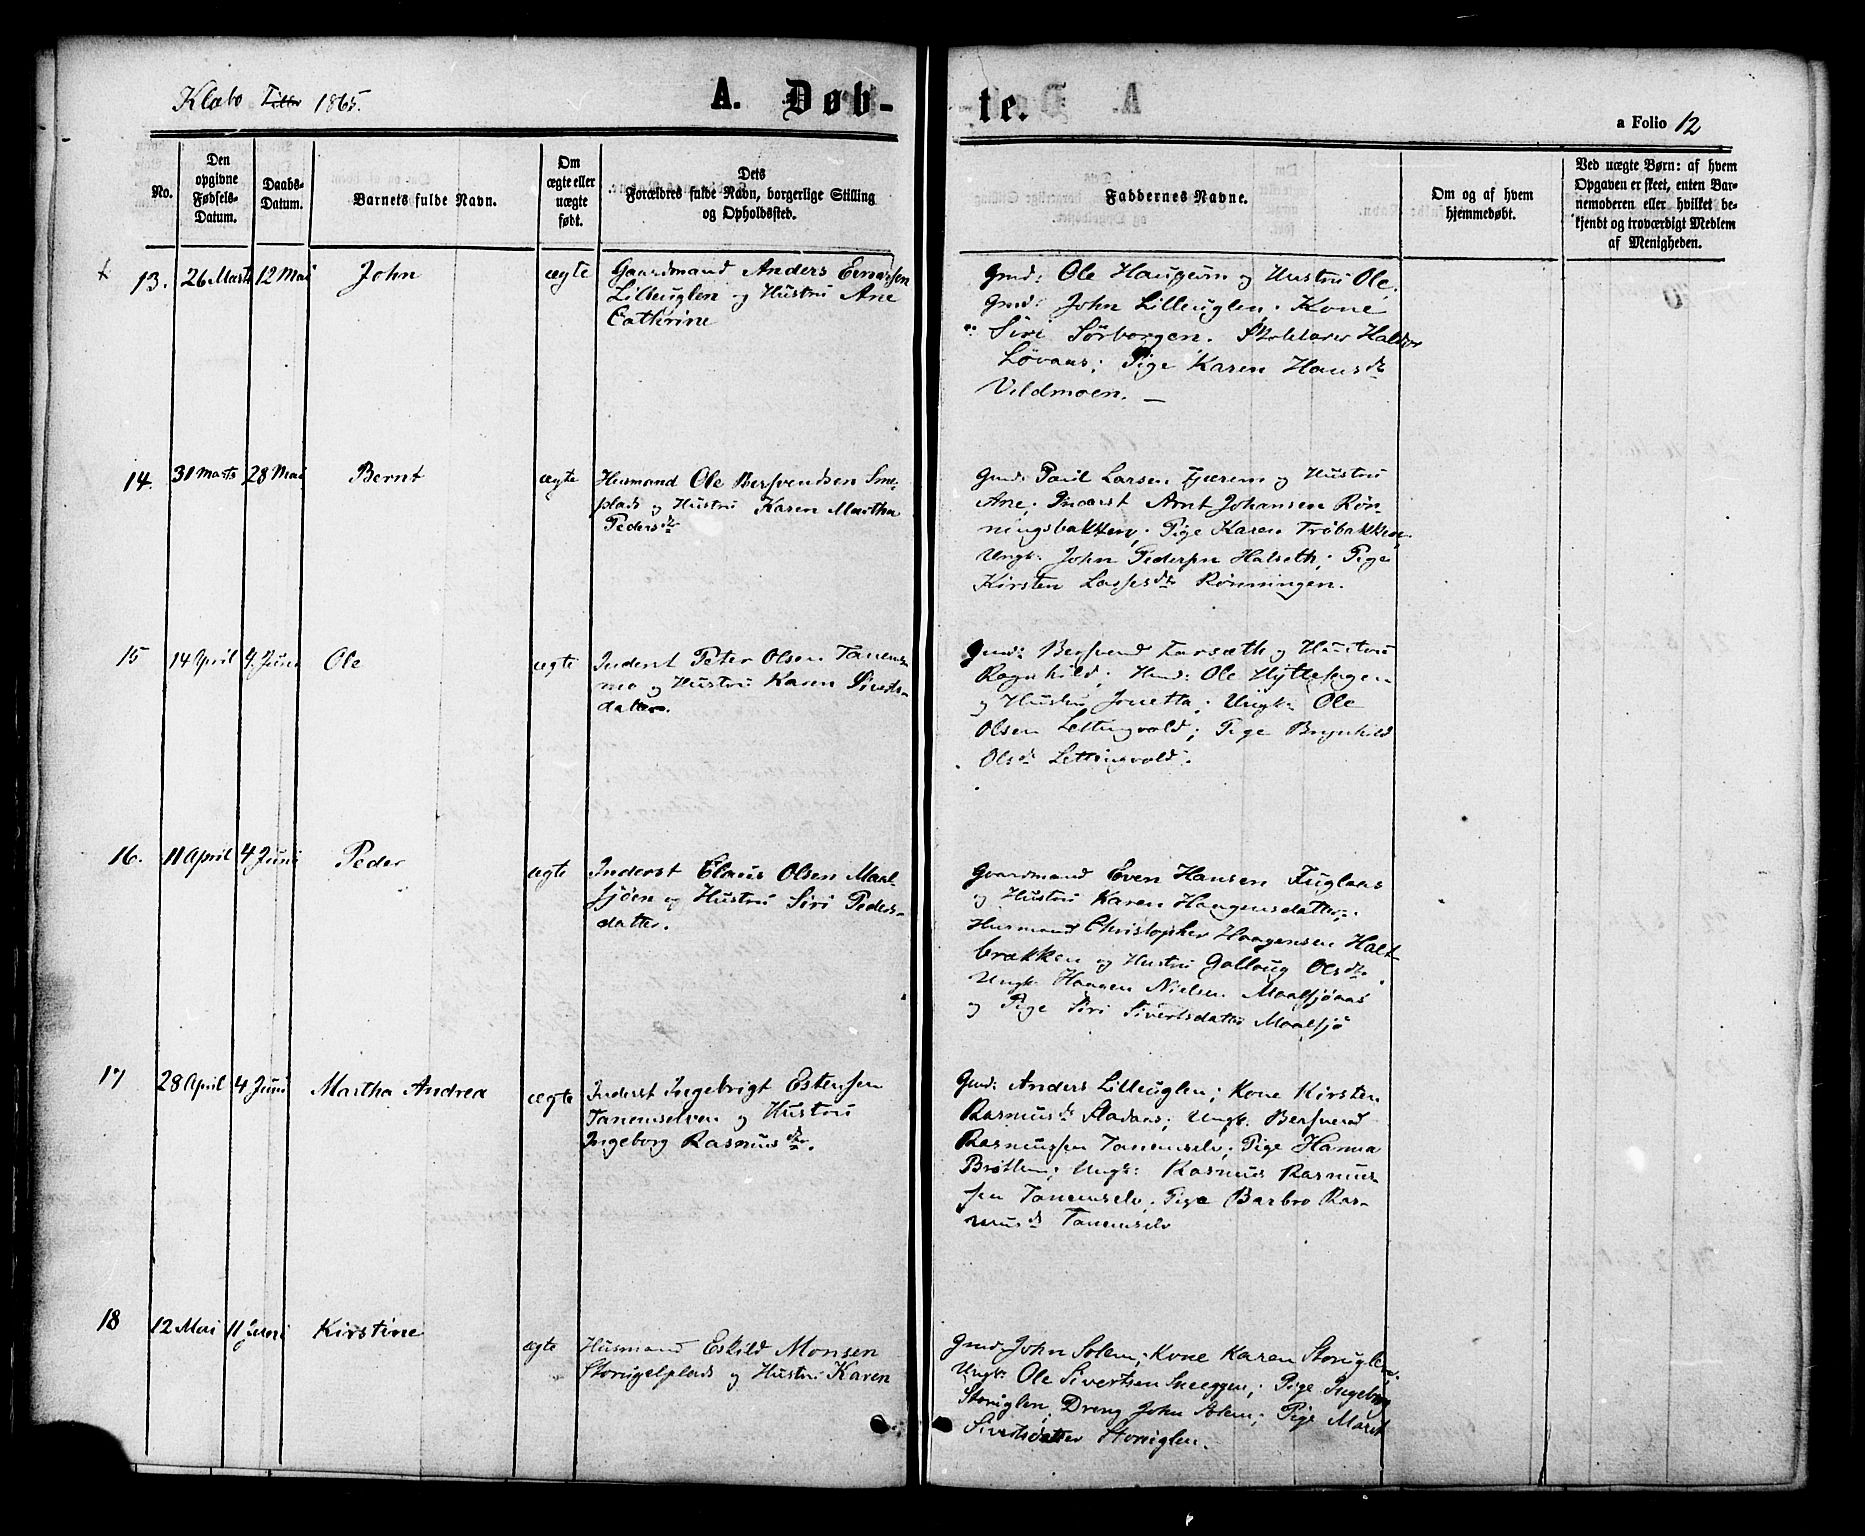 Klæbo Tiller 1865.
A. Døb-
No.
Den
opgivne
Fødsels-
Datum.
Daabs-
Datum.
Barnets fulde Navn.
Om
ægte eller
uægte
født.
Dets
Forældres fulde Navn, borgerlige Stilling
og Opholdssted.
13. 26 Marts 12 Mai John ægte Gaardmand Anders Einarsen
Lilleuglen og Hustru Ane
Cathrine
14. 31 Marts 28 Mai Bernt ægte Husmand Ole Bersvendsen
plads og Hustru Karen Martha
Pedersdtr
15 14 April 4 Juni Ole ægte Inderst Peter Olsen Tanems-
mo og Hustru Karen Siverts-
datter.
16. 11 April 4 Juni Peder ægte Inderst Claus Olsen Maal-
sjöen og Hustru Siri Peders-
datter.
17 28 April 4 Juni Martha Andrea ægte Inderst Ingebrigt Estensen
Tanemselven og Hustru
Ingeborg Rasmusdtr.
18 12 Mai 11 Juni Kirstine ægte Husmand Eskild Monsen
Storuglplads og Hustru Karen
te.
a Folio 12
Faddernes Navne.
Om og af hvem
hjemmedøbt.
Ved uægte Børn: af hvem
Opgaven er skeet, enten Bar-
nemoderen eller hvilket be-
kjendt og troværdigt Medlem
af Menigheden.
Gmd: Ole Haugum og Hustru Ole.
Gmd: John Lilleuglen; Kone
Siri Sörborgen. Skolelærer Haldor
Lövaas; Pige Karen Hansdtr
Vildmoen. —
Gmd: Paul Larsen Fjærem og Hustru
Ane; Inderst Arnt Johansen Rön-
ningsbakken; Pige Karen Tröbakken
Ungk: John Pedersen Halseth; Pige
Kirsten Lassesdtr Rönningen.
Gmd: Bersvend Forsæth og Hustru
Ragnhild; Hmd: Ole Hyttehagen
og Hustru Jonetta; Ungk: Ole
Olsen Lettingvold; Pige Brynhild
Olsdr Lettingvold.
Gaardmand Even Hansen Fuglaas
og Hustru Karen Haagensdatter;
Husmand Christopher Haagensen Halt-
brækken og Hustru Gollaug Olsdtr.
Ungk. Haagen Nielsen Maalsjöaas
og Pige Siri Sivertsdatter Maalsjö
Gmd: Anders Lilleuglen; Kone Kirsten
Rasmusdr Fladaas; Ungk. Bersvend
Rasmussen Tanemselv; Pige Hanna
Bröttem; Ungk: Rasmus Rasmus-
sen Tanemselv; Pige Barbro Ras-
musdr Tanemselv
Gmd. John Solem; Kone Karen Storuglen;
Ungk: Ole Sivertsen Sneeggen; Pige Ingeborg
Storuglen, Dreng John Solem; Pige Maret
Sivertsdatter Storuglen.